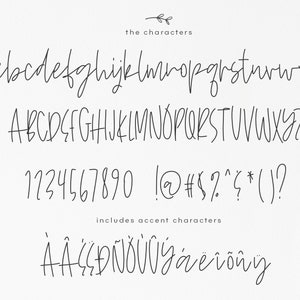 the characters
abcdefghijklmnopqrstuvw
ABCDEFGHIJKLMNOPQRSTUVWXYZ
1234567890 !@#$%^&*()?
includes accent characters